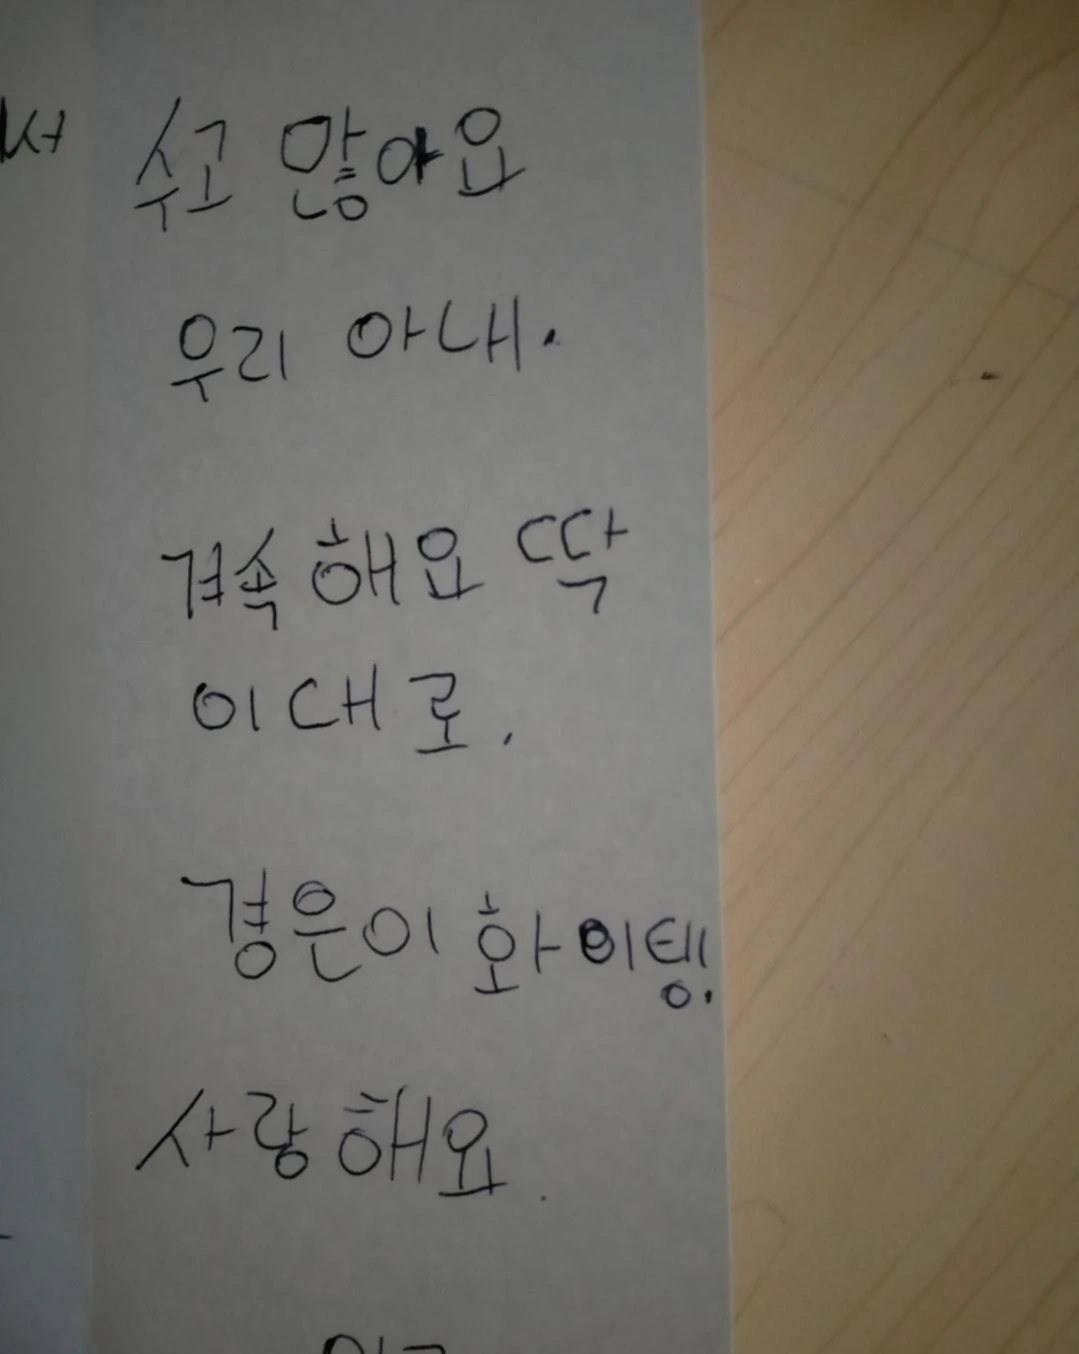 서 수고 많아요
우리 아내.
겨속 해요 딱
이대로.
경은이 화이팅.
사랑해요.